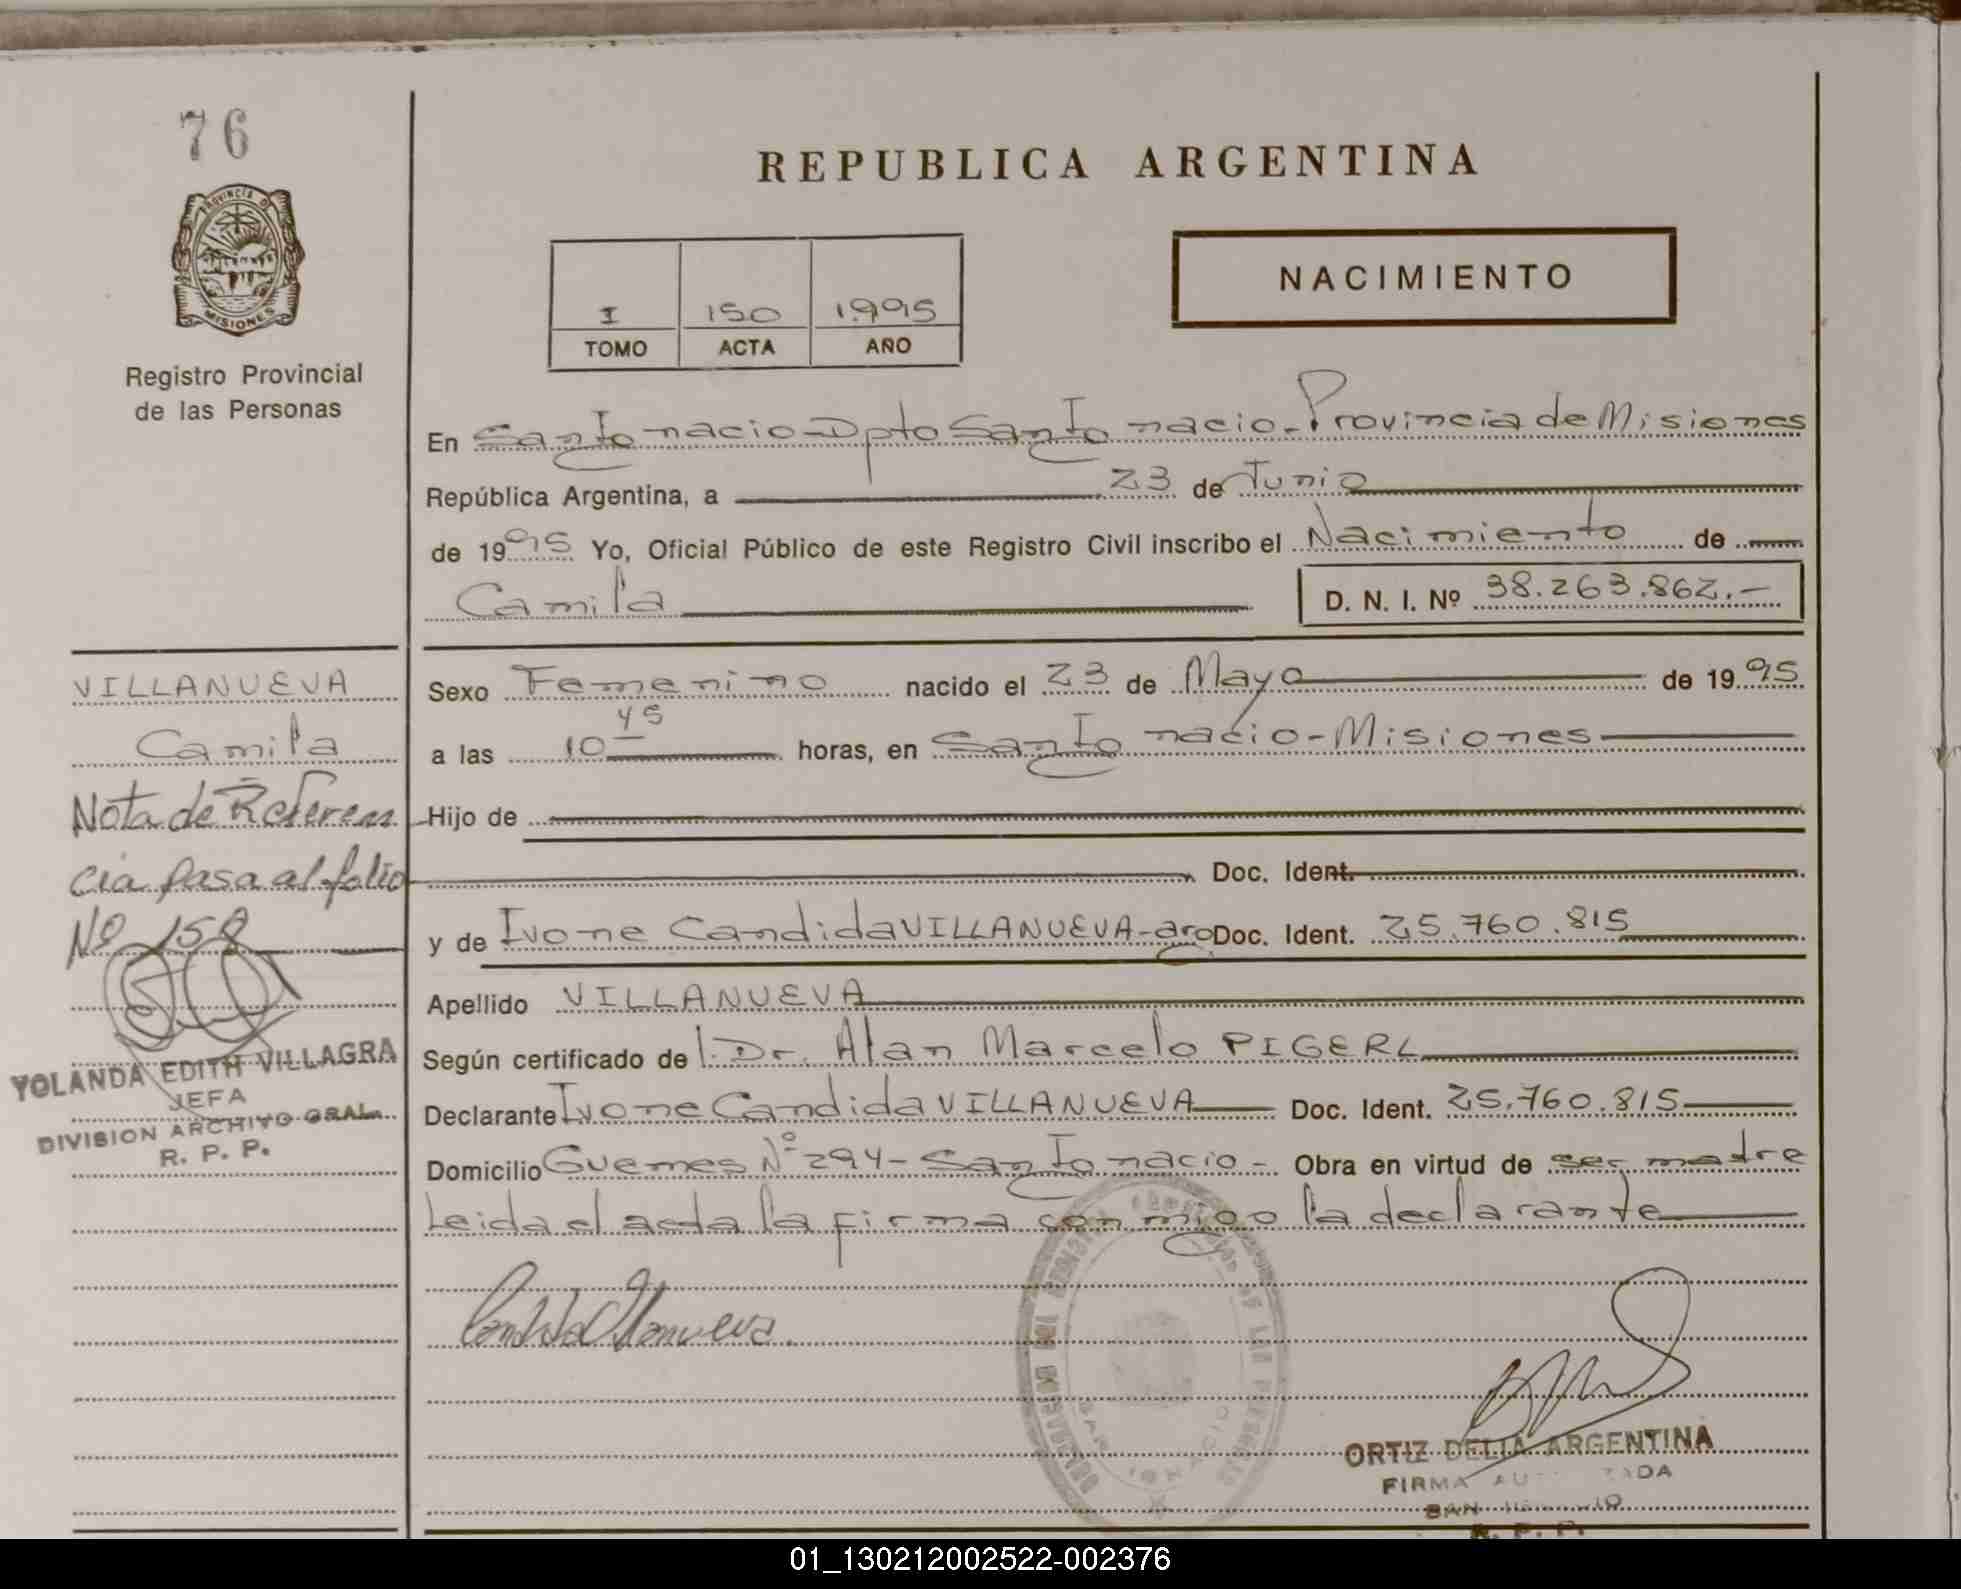 76
PROVINCIA D
MISIONES
Registro Provincial
de las Personas
REPUBLICA ARGENTINA
NACIMIENTO
I 150 1995
TOMO ACTA AÑO
En San Ignacio-Dpto San Ignacio-Provincia de Misiones
República Argentina, a 23 de Junio
de 1995 Yo, Oficial Público de este Registro Civil inscribo el Nacimiento de
Camila D. N. I. Nº 38.263.862.-
VILLANUEVA
Camila
Nota de Referen
cia pasa al folio
Nº 158
YOLANDA EDITH VILLAGRA
JEFA
DIVISION ARCHIVO GRAL.
R. P. P.
Sexo Femenino nacido el 23 de Mayo de 1995
a las 10 45 horas, en San Ignacio-Misiones
Hijo de
Doc. Ident.
y de Ivone Candida VILLANUEVA-arg Doc. Ident. 25.760.815
Apellido VILLANUEVA
Según certificado de l. Dr. Alan Marcelo PIGERL
Declarante Ivone Candida VILLANUEVA Doc. Ident. 25.760.815
Domicilio Guemes Nº 294-San Ignacio- Obra en virtud de ser madre
Leida el acta la firma conmigo la declarante
ORTIZ DELIA ARGENTINA
FIRMA
SAN
R. P. P.
SAN IGNACIO
01_130212002522-002376